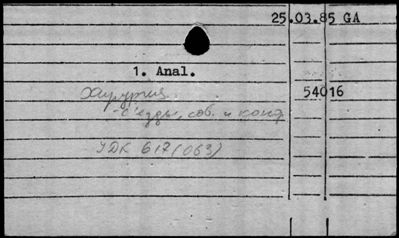 25.03.85 GA
1. Anal.
Хирургия 54016
- съезды, сов. и конф
УДК 617(063)